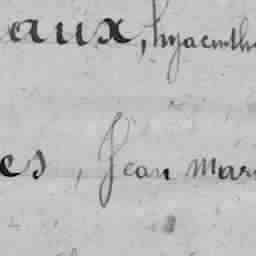 aux, hyacinth
es, Jean Mar